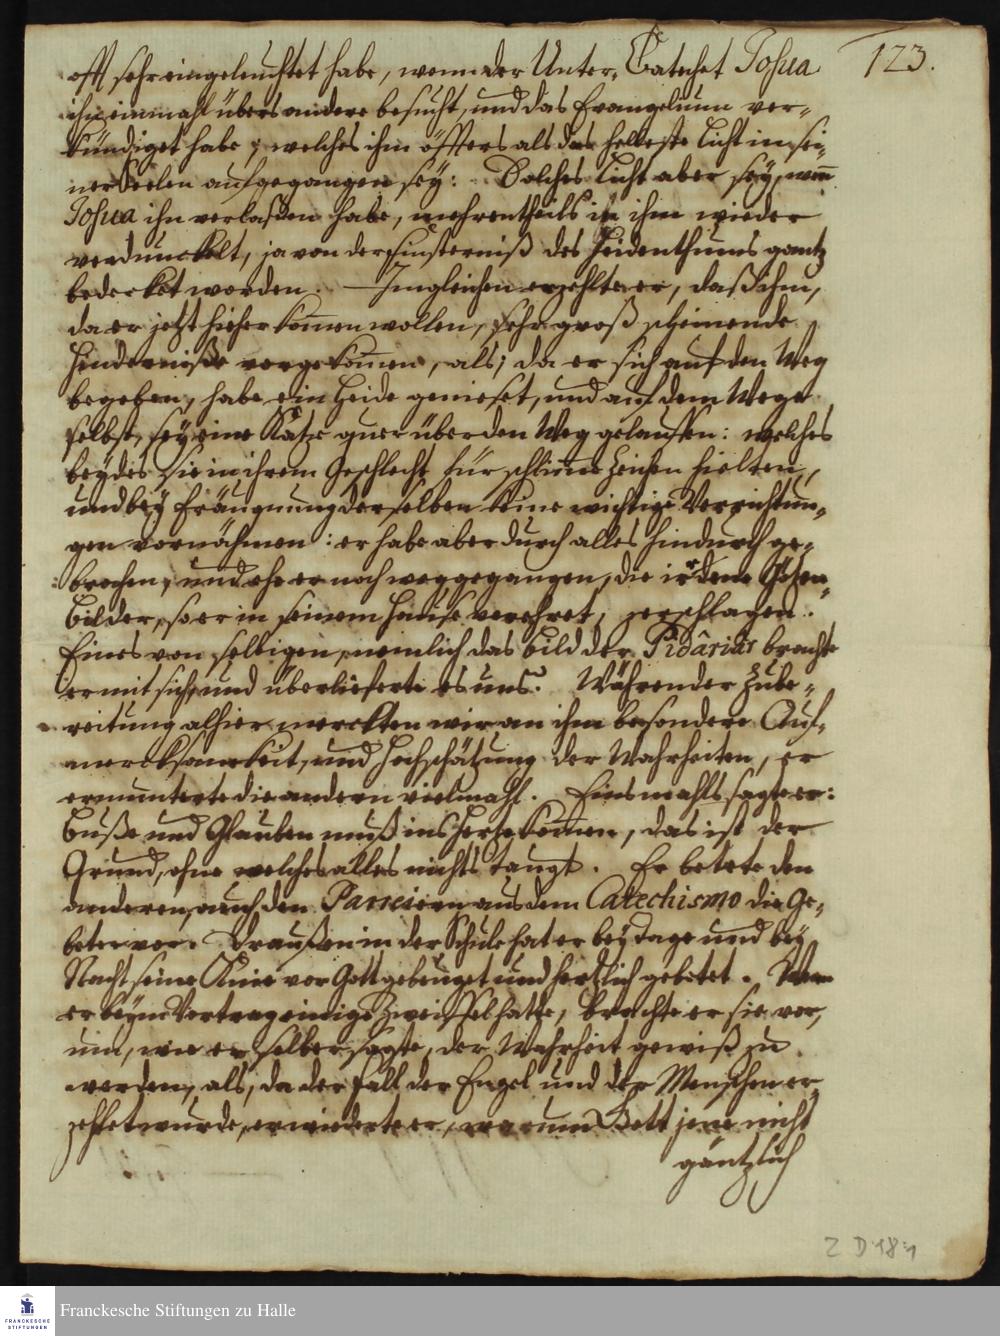 123.
offt sehr eingeleuchtet habe, wenn der Unter-Catechet Josua
ihn einmahl übers andere besucht, und das Evangelium ver-
kündiget habe; welches ihm öffters als das helleste Licht in sei-
ner Seelen aufgegangen sey: Solches Licht aber sey, weñ
Josua ihn verlaßen habe, mehrentheils in ihm wieder
verdunckelt, ja von der Finsterniß des Heidenthums gantz
bedecket worden. Imgleichen erzehlte er, daß ihm,
da er jetzt hieher kom̄en wollen, sehr groß scheinende
Hinderniße vorgekom̄en, als; da er sich auf den Weg
begeben, habe ein Heide genieset, und auf dem Wege
selbst, sey eine Katze quer über den Weg gelauffen: welches
beydes sie in ihrem Geschlecht für schlim̄e Zeichen hielten,
und bey Eräugnung derselben keine wichtige Verrichtun-
gen vornähmen: er habe aber durch alles hindurch ge-
brochen, und ehe er noch weggegangen, die irdene Götzen-
bilder, so er in seinem Hause verehret, zerschlagen.
Eines von selbigen, nemlich das Bild der Pidâriar brachte
er mit sich, und überlieferte es uns. Währender Zube-
reitung alhier merckten wir an ihm besondere Auf-
mercksamkeit, und Hochschätzung der Wahrheiten, er
ermunterte die andern vielmahl. Einsmahls sagte er:
Buße und Glauben muß ins Hertz kom̄en, das ist der
Grund, ohne welches alles nichts taugt. Er betete den
anderen, auch den Parreiern aus dem Catechismo die Ge-
beter vor. Draußen in der Schule hat er bey Tage und bey
Nacht seine Knie vor Gott gebeuget und hertzlich gebetet. Wen
er beym Vortrag einige Zweiffel hatte, brachte er sie vor,
um, wie er selber sagte, der Wahrheit gewiß zu
werden, als, da der Fall der Engel und der Menschen er-
zehlet wurde, erwiederte er, warum Gott jene nicht
gäntzlich
Z D 18:1
FRANCKESCHE
STIFTUNGEN
Franckesche Stiftungen zu Halle